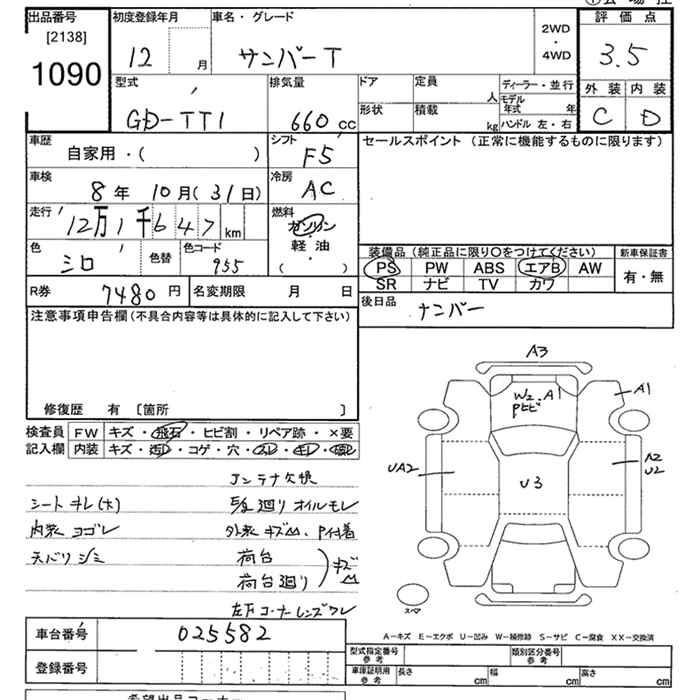 出品番号
[2138]
1090
初度登録年月
12 月
車名・グレード
サンバーT
2WD
・
4WD
評価点
3.5
外装 内装
C D
型式
GD-TT1
排気量
660 cc
ドア
定員
人
形状
積載
kg
ディーラー・並行
モデル年式 年
ハンドル 左・右
車歴
自家用・( )
シフト
F5
セールスポイント (正常に機能するものに限ります)
車検
8年 10月(31日)
冷房
AC
走行
12万1千647 km
燃料
ガソリン
軽油
( ・ )
色
シロ
色替
色コード
955
装備品 (純正品に限り○をつけてください)
PS PW ABS エアB AW
SR ナビ TV カワ
新車保証書
有・無
R券 7480 円
名変期限 月 日
後日品
ナンバー
注意事項申告欄(不具合内容等は具体的に記入して下さい)
修復歴 有 〔箇所 〕
検査員 FW キズ・飛石・ヒビ割・リペア跡・×要
記入欄 内装 キズ・汚レ・コゲ・穴・スレ・キレ
アンテナ欠損
シートキレ(大)
E/G廻りオイルモレ
内装ヨゴレ
外装キズ凹、P付着
天バリシミ
荷台
荷台廻り
キズ凹
左方コーナーレンズワレ
A3
W2.A1
Pヒビ
A1
UA2
U3
A2
U2
スペア
車台番号 025582
登録番号
A－キズ E－エクボ U－凹み W－補修跡 S－サビ C－腐食 XX－交換済
型式指定番号
参考
類別区分番号
参考
車庫証明用
参考
長さ cm
幅 cm
高さ cm